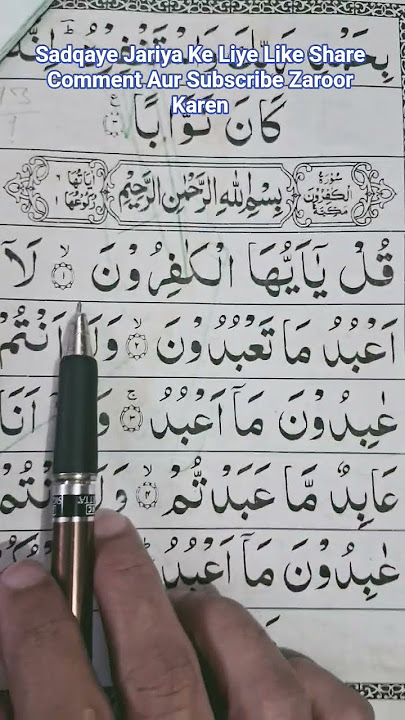 Sadqaye Jariya Ke Liye Like Share
Comment Aur Subscribe Zaroor
Karen
كَانَ تَوَّابًا ۝
سُوْرَةُ الْكٰفِرُوْنَ مَكِّيَّةٌ
بِسْمِ اللّٰهِ الرَّحْمٰنِ الرَّحِيْمِ
اٰيَاتُهَا ٦ رُكُوْعُهَا ١
قُلْ يٰۤاَيُّهَا الْكٰفِرُوْنَ ۙ۝١ لَاۤ
اَعْبُدُ مَا تَعْبُدُوْنَ ۙ۝٢ وَلَاۤ اَنْتُمْ
عٰبِدُوْنَ مَاۤ اَعْبُدُ ۚ۝٣ اَنَا
عَابِدٌ مَّا عَبَدْتُّمْ ۙ۝٤ وَلَاۤ اَنْتُمْ
عٰبِدُوْنَ مَاۤ اَعْبُدُ